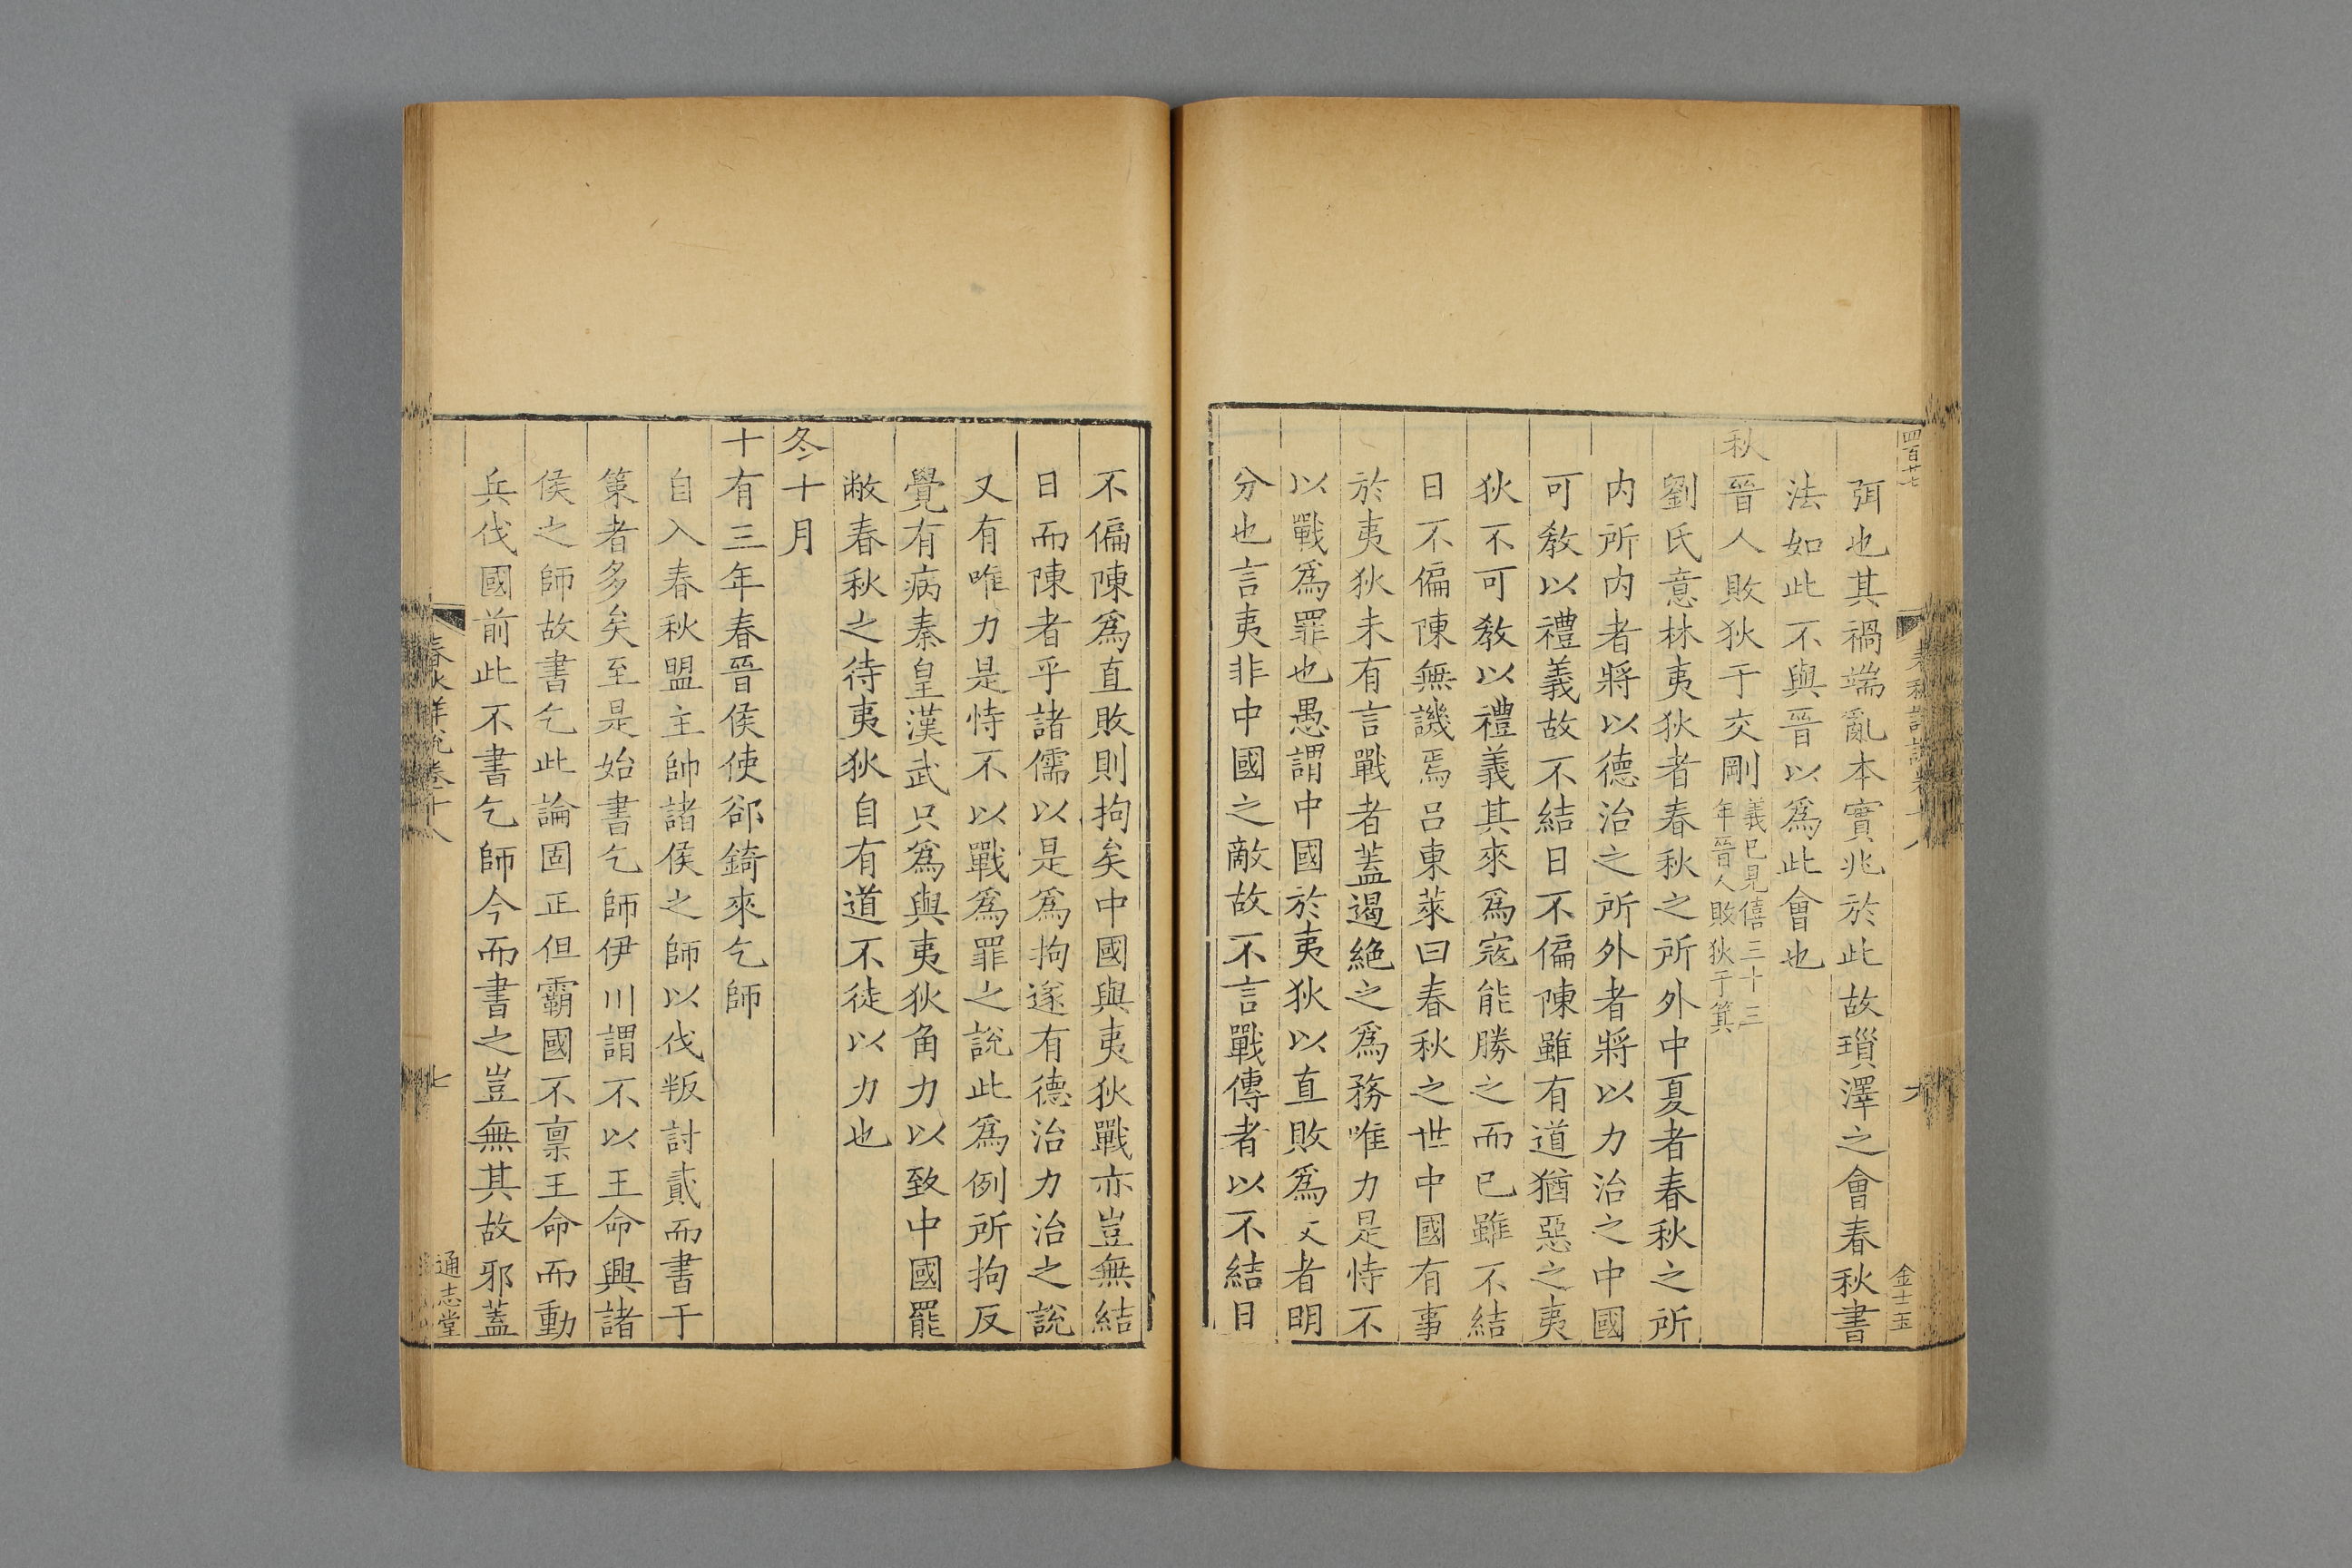 四百廿七
弭也其禍端亂本實兆於此故瑣澤之會春秋書
法如此不與晉以爲此會也
秋晉人敗狄于交剛義已見僖三十三
年晉人敗狄于箕
劉氏意林夷狄者春秋之所外中夏者春秋之所
内所内者將以德治之所外者將以力治之中國
可敎以禮義故不結日不偏陳雖有道猶惡之夷
狄不可敎以禮義其來爲寇能勝之而已雖不結
日不偏陳無譏焉呂東萊曰春秋之世中國有事
於夷狄未有言戰者蓋遏絶之爲務唯力是恃不
以戰爲罪也愚謂中國於夷狄以直敗爲文者明
分也言夷非中國之敵故不言戰傳者以不結日
金士玉
不偏陳爲直敗則拘矣中國與夷狄戰亦豈無結
日而陳者乎諸儒以是爲拘遂有德治力治之說
又有唯力是恃不以戰爲罪之說此爲例所拘反
覺有病秦皇漢武只爲與夷狄角力以致中國罷
敝春秋之待夷狄自有道不徒以力也
冬十月
十有三年春晉侯使郤錡來乞師
自入春秋盟主帥諸侯之師以伐叛討貳而書于
策者多矣至是始書乞師伊川謂不以王命興諸
侯之師故書乞此論固正但霸國不禀王命而動
兵伐國前此不書乞師今而書之豈無其故邪蓋
春秋詳說卷十八
七
通志堂